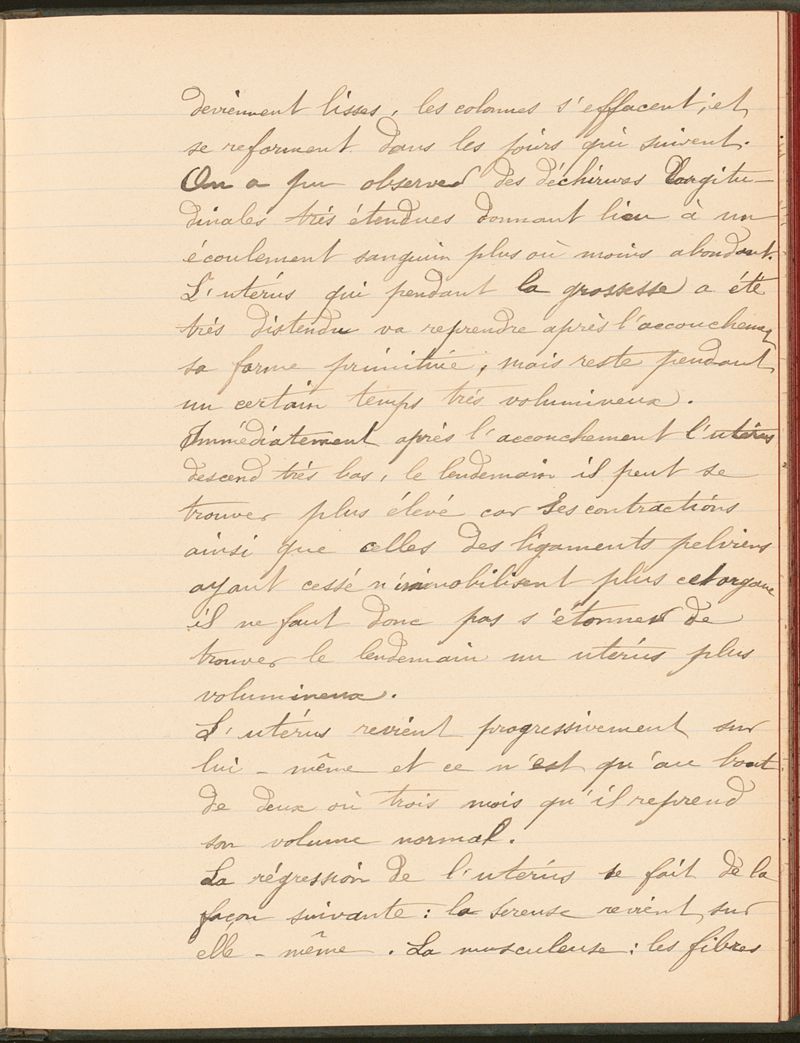 deviennent lisses, les colonnes s'effacent, et
se reforment dans les jours qui suivent.
On a pu observer des déchirures longitu-
dinales très étendues donnant lieu à un
écoulement sanguin plus où moins abondant.
L'utérus qui pendant la grossesse a été
très distendu va reprendre après l'accouchement
sa forme primitive, mais reste pendant
un certain temps très volumineux.
Immédiatement après l'accouchement l'utérus
descend très bas, le lendemain il peut se
trouver plus élevé car ses contractions
ainsi que celles des ligaments pelviens
ayant cessé n'immobilisent plus cet organe
il ne faut donc pas s'étonner de
trouver le lendemain un utérus plus
volumineux.
L'utérus revient progressivement sur
lui-même et ce n'est qu'au bout
de deux où trois mois qu'il reprend
son volume normal.
La régression de l'utérus se fait de la
façon suivante : la séreuse revient sur
elle-même. La musculeuse : les fibres